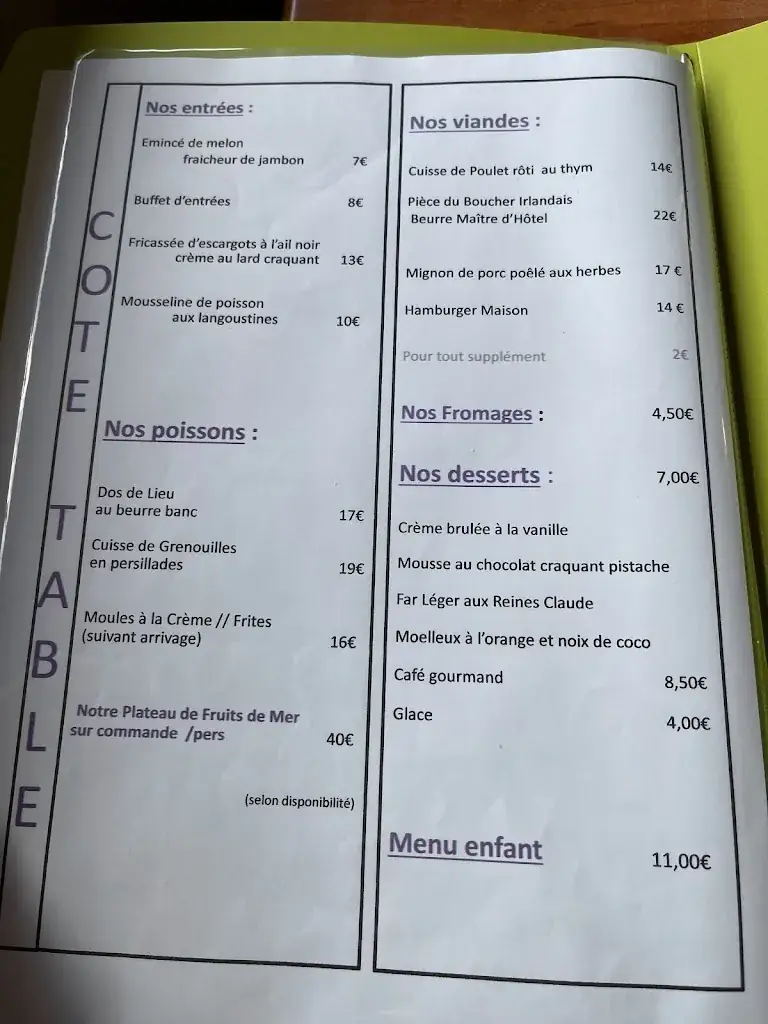 COTE TABLE
Nos entrées :
Emincé de melon
fraicheur de jambon 7€
Buffet d'entrées 8€
Fricassée d'escargots à l'ail noir
crème au lard craquant 13€
Mousseline de poisson
aux langoustines 10€
Nos poissons :
Dos de Lieu
au beurre banc 17€
Cuisse de Grenouilles
en persillades 19€
Moules à la Crème // Frites
(suivant arrivage) 16€
Notre Plateau de Fruits de Mer
sur commande /pers 40€
(selon disponibilité)
Nos viandes :
Cuisse de Poulet rôti au thym 14€
Pièce du Boucher Irlandais
Beurre Maître d'Hôtel 22€
Mignon de porc poêlé aux herbes 17 €
Hamburger Maison 14 €
Pour tout supplément 2€
Nos Fromages : 4,50€
Nos desserts : 7,00€
Crème brulée à la vanille
Mousse au chocolat craquant pistache
Far Léger aux Reines Claude
Moelleux à l'orange et noix de coco
Café gourmand 8,50€
Glace 4,00€
Menu enfant 11,00€